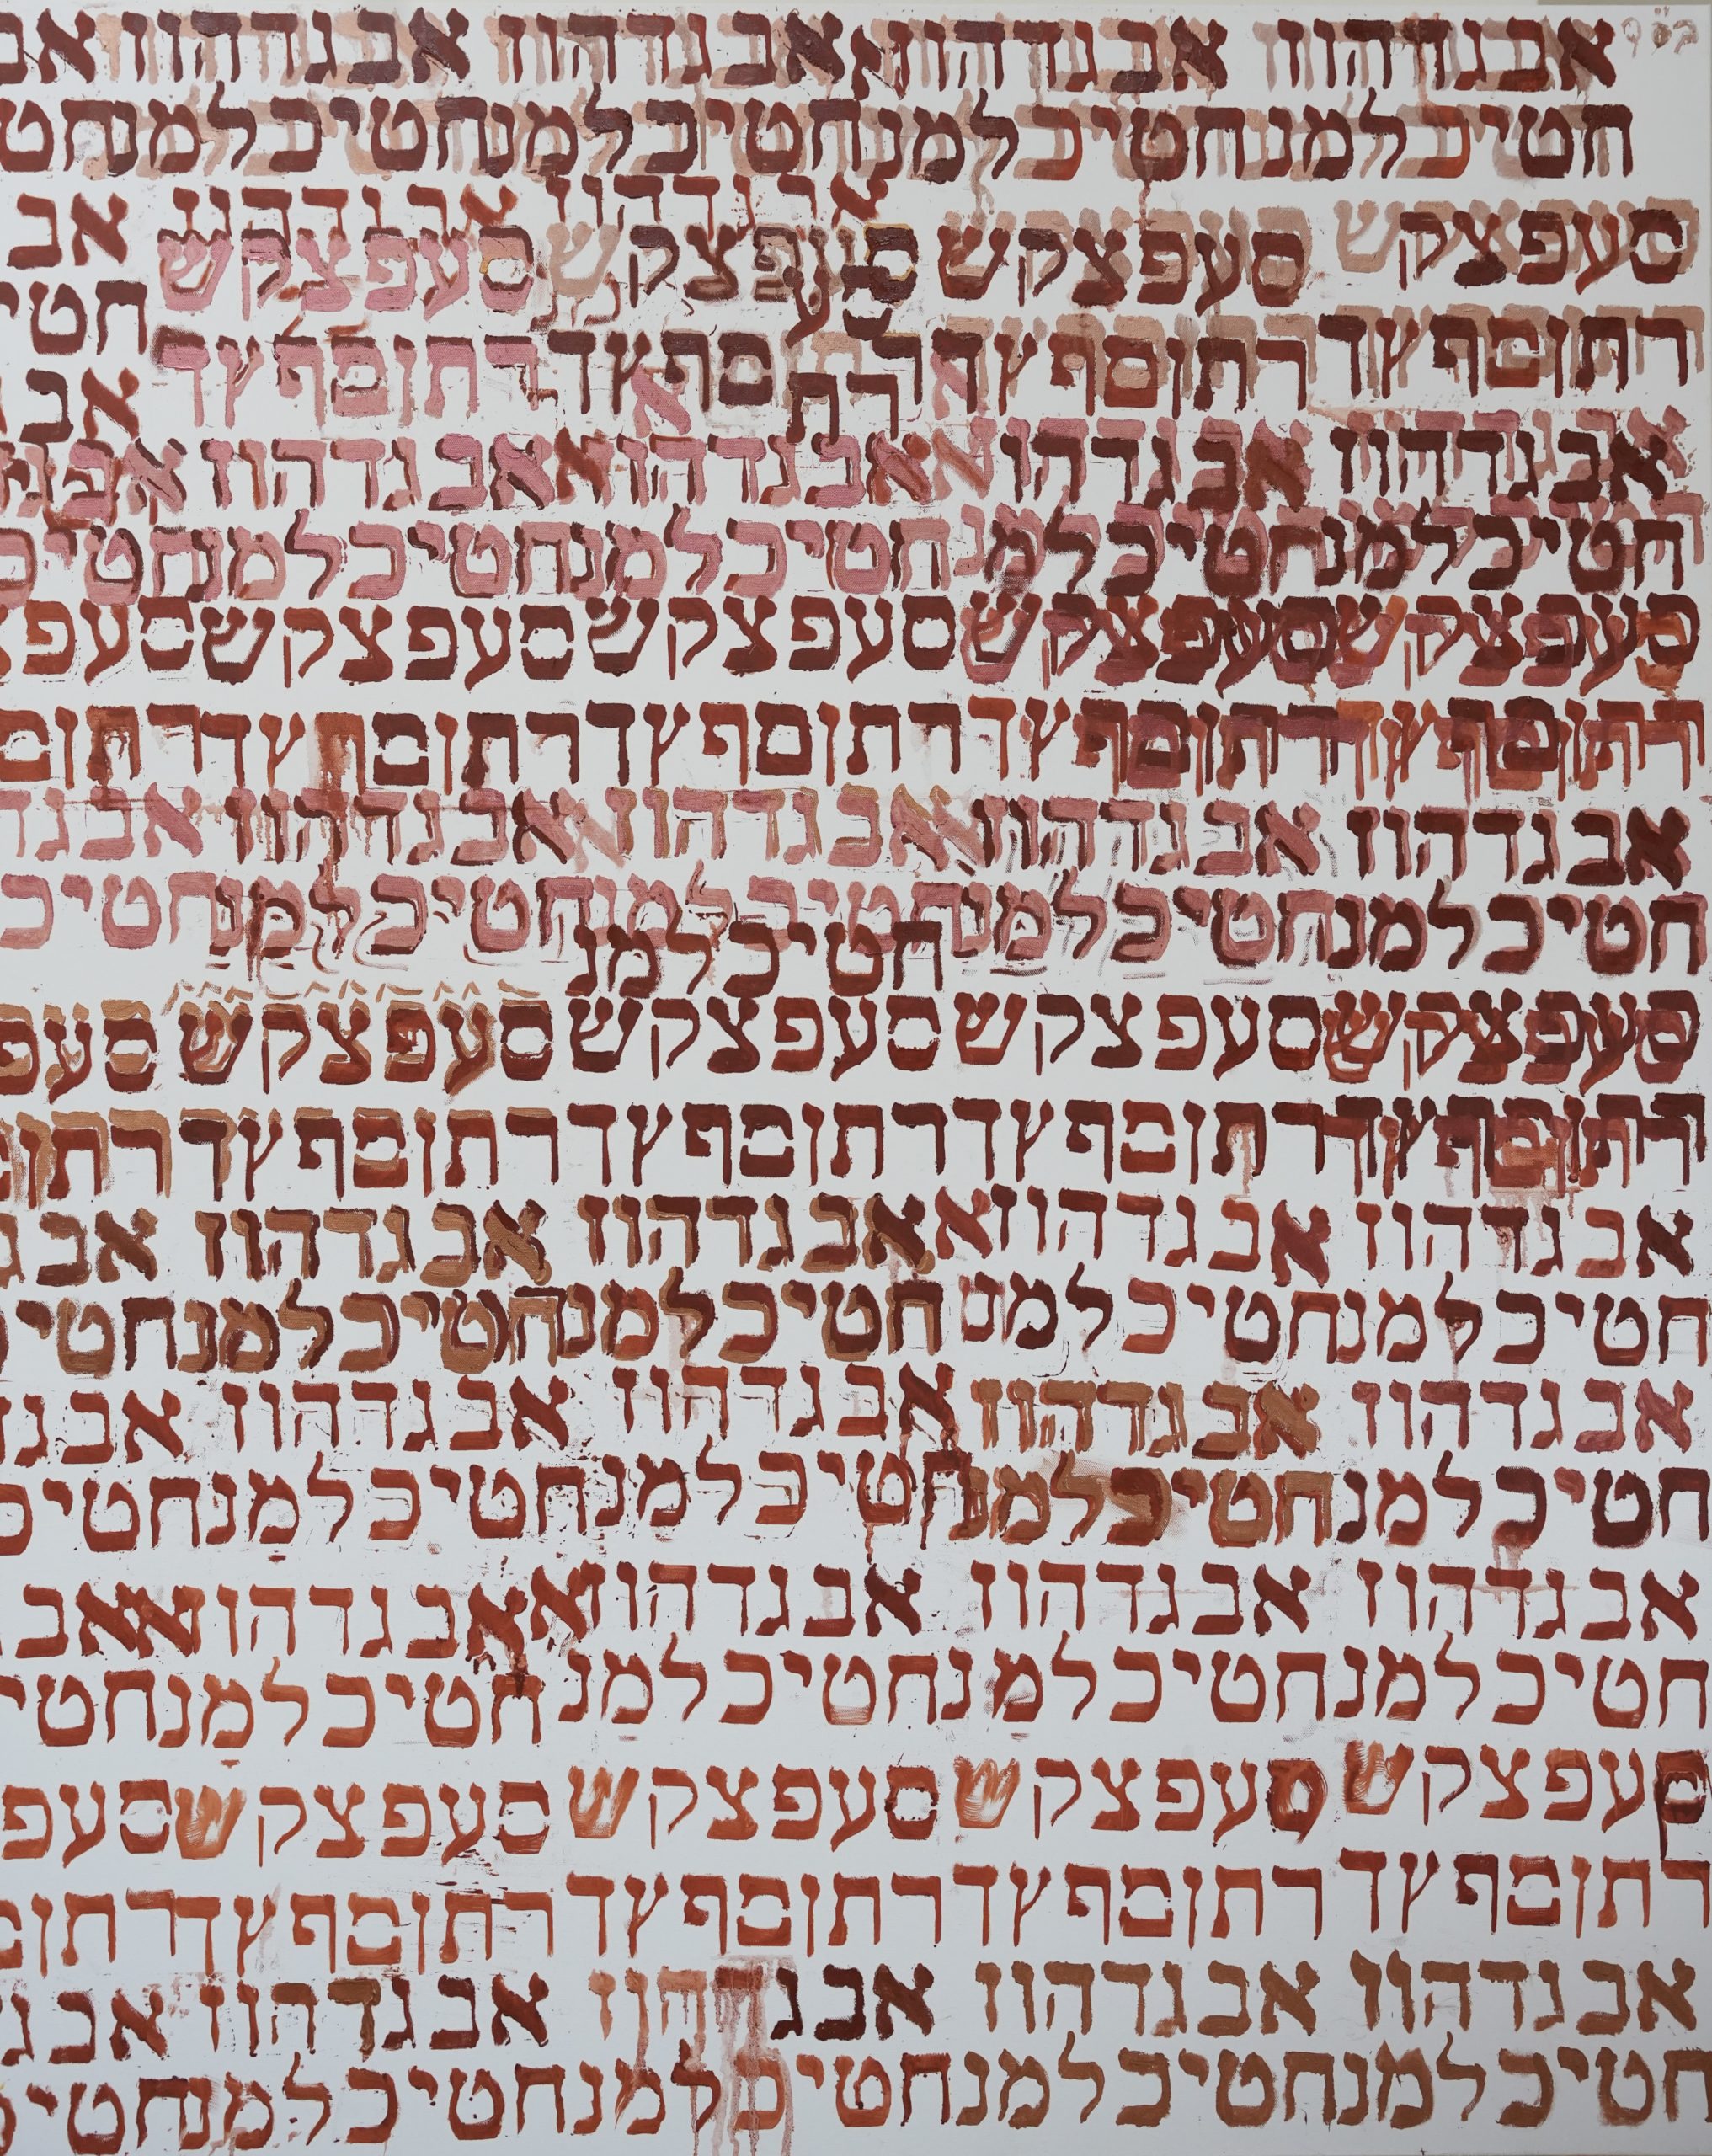 אבגדהוז אבגדהוז אבגדהוז אבגדהוז אב
חטיכלמנ חטיכלמנ חטיכלמנ חטיכלמנ חט
סעפצקש סעפצקש סעפצקש סעפצקש אב
רתןםףץך רתןםףץך רתןםףץך חטי
אבגדהוז אבגדהוז אבגדהוז אבגדהוז אבג
חטיכלמנ חטיכלמנ חטיכלמנ חטיכלמנ חטיכ
סעפצקש סעפצקש סעפצקש סעפצקש סעפ
רתןםףץך רתןםףץך רתןםףץך רתןםףץך רתןם
אבגדהוז אבגדהוז אבגדהוז אבגדהוז אבגד
חטיכלמנ חטיכלמנ חטיכלמנ חטיכלמנ חטיכ
חטיכלמנ
סעפצקש סעפצקש סעפצקש סעפצקש סעפ
רתןםףץך רתןםףץך רתןםףץך רתןםףץך רתןם
אבגדהוז אבגדהוז א אבגדהוז אבגדהוז אבג
חטיכלמנ חטיכלמנ חטיכלמנ חטיכלמנ חטי
אבגדהוז אבגדהוז אבגדהוז אבגדהוז אבגד
חטיכלמנ חטיכלמנ חטיכלמנ חטיכלמנ חטיכ
אבגדהוז אבגדהוז אבגדהוז א אבגדהו א אב
חטיכלמנ חטיכלמנ חטיכלמנ חטיכלמנ חטי
סעפצקש סעפצקש סעפצקש סעפצקש סעפ
רתןםףץך רתןםףץך רתןםףץך רתןםףץך רתןם
אבגדהוז אבגדהוז אבגדהוז אבגדהוז אבג
חטיכלמנ חטיכלמנ חטיכלמנ חטיכלמנ חטי